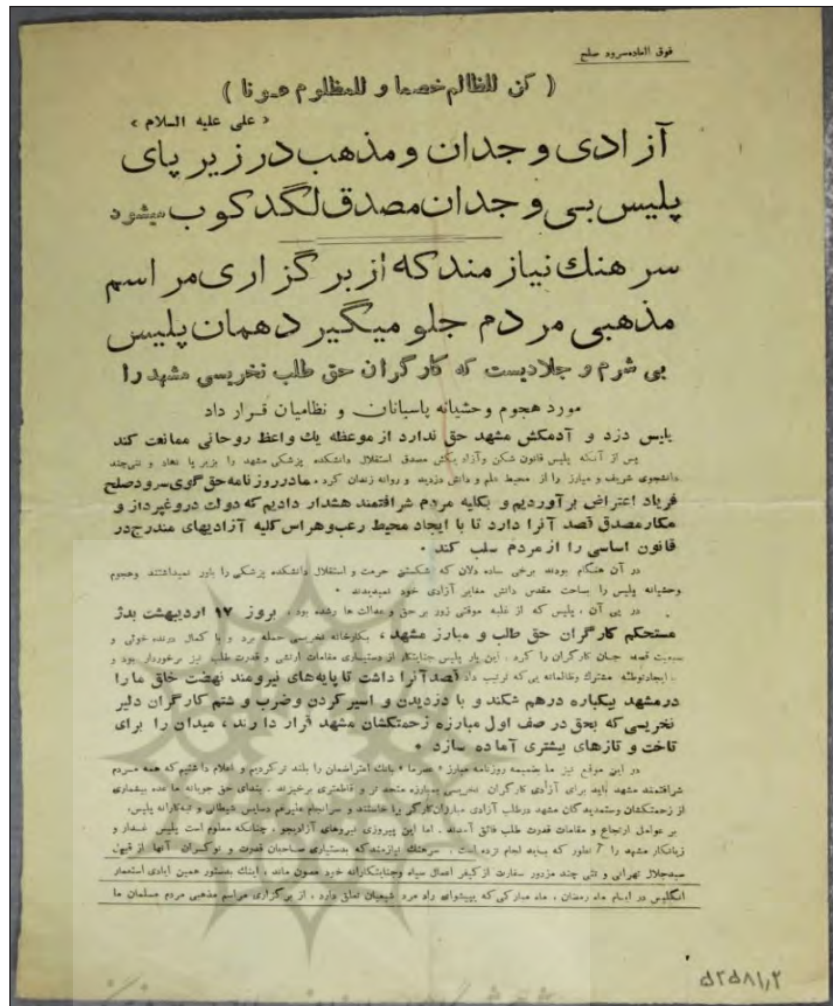 فوق العاده سرود صلح
( کن للظالم خصما و للمظلوم عونا )
« علی علیه السلام »
آزادی وجدان و مذهب در زیر پای
پلیس بی وجدان مصدق لگدکوب میشود
سرهنك نیازمند که از برگزاری مراسم
مذهبی مردم جلو میگیرد همان پلیس
بی شرم و جلادیست که کارگران حق طلب نخریسی مشهد را
مورد هجوم وحشیانه پاسبانان و نظامیان قرار داد
پلیس دزد و آدمکش مشهد حق ندارد از موعظه یك واعظ روحانی ممانعت کند
پس از آنکه پلیس قانون شکن و آزاد یکش مصدق استقلال دانشکده پزشکی مشهد را بزیر پا نهاد و تنی چند
دانشجوی شریف و مبارز را از محیط علم و دانش دزدید و روانه زندان کرد ، مادر روزنامه حق گوی سرود صلح
فریاد اعتراض برآوردیم و بکلیه مردم شرافتمند هشدار دادیم که دولت دروغپرداز و
مکار مصدق قصد آنرا دارد تا با ایجاد محیط رعب و هراس کلیه آزادیهای مندرج در
قانون اساسی را از مردم سلب کند •
در آن هنگام بودند برخی ساده دلان که شکستن حرمت و استقلال دانشکده پزشکی را باور نمیداشتند وهجوم
وحشیانه پلیس را بساحت مقدس دانش مغایر آزادی خود نمیدیدند •
در پی آن ، پلیس که از غلبه موقتی زور بر حق و عدالت ها رشده بود ، بروز ۱۷ اردیبهشت بدژ
مستحکم کارگران حق طلب و مبارز مشهد ، بکارخانه نخریسی حمله برد و با کمال درنده خوئی و
سبعیت قصد جان کارگران را کرد . این بار پلیس جنایتکار از دستیاری مقامات ارتشی و قدرت طلب نیز برخوردار بود و
با ایجاد توطئه مشترك وظالمانه یی که ترتیب داد قصد آنرا داشت تا پایه‌های نیرومند نهضت خلق ما را
در مشهد بیکباره درهم شکند و با دزدیدن و اسیر کردن و ضرب و شتم کارگران دلیر
نخریسی که بحق در صف اول مبارزه زحمتکشان مشهد قرار دارند ، میدان را برای
تاخت و تازهای بیشتری آماده سازد •
در این موقع نیز ما بضمیمه روزنامه مبارز « عصر ما » بانك اعتراضمان را بلند تر کردیم و اعلام داشتیم که همه مردم
شرافتمند مشهد باید برای آزادی کارگران نخریسی بمبارزه متحد تر و قاطعتری برخیزند . بندای حق جویانه ما عده بیشماری
از زحمتکشان وستمدیدگان مشهد درطلب آزادی مبارزان کارگر بپا خاستند و سرانجام علیرغم دسایس شیطانی و تبه‌کارانه پلیس،
بر عوامل ارتجاع و مقامات قدرت طلب فائق آمدند . اما این پیروزی نیروهای آزادیجو ، چنانکه معلوم است پلیس غدار و
زیانکار مشهد را آنطور که باید لجام نزده است . سرهنك نیازمند که بدستیاری صاحبان قدرت و نوکران آنها از قبیل
سیدجلال تهرانی و تنی چند مزدور سفارت از کیفر اعمال سیاه وجنایتکارانه خود مصون ماند ، اینك بدستور همین ایادی استعمار
انگلیس در ایام ماه رمضان ، ماه مبارکی که بپیشوای راد مرد شیعیان تعلق دارد ، از برگزاری مراسم مذهبی مردم مسلمان ما
۵۲۵۸۱٫۲